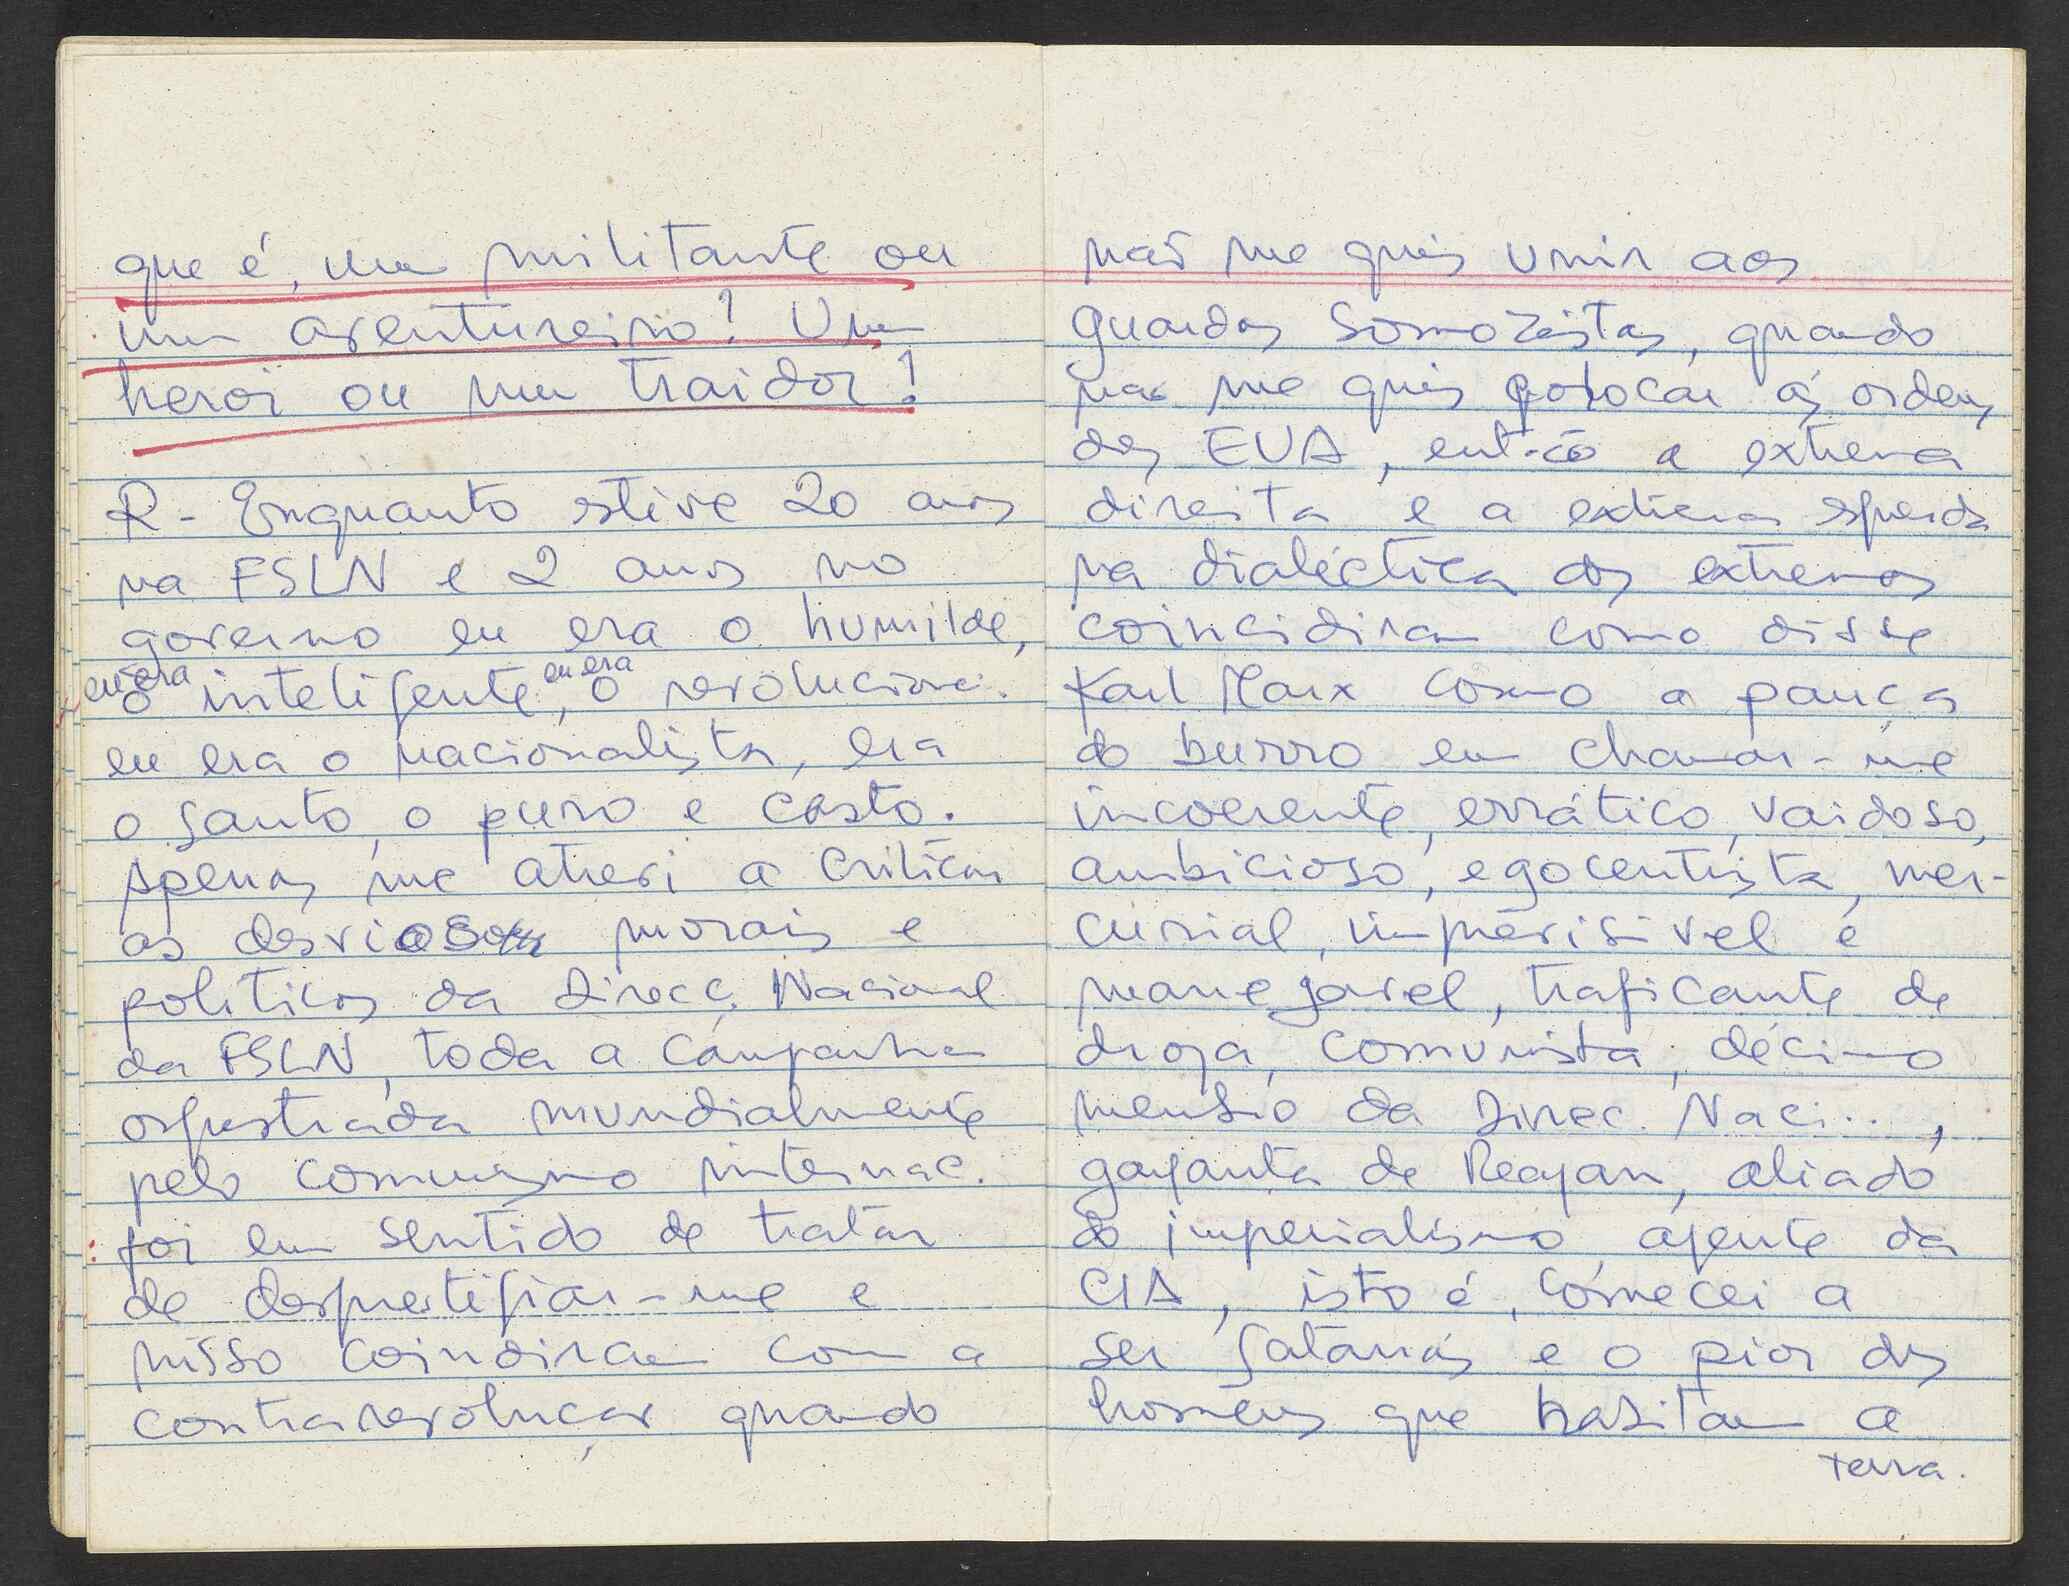 que é, um militante ou
um aventureiro? Um
heroi ou um traidor?
R - Enquanto estive 20 anos
na FSLN e 2 anos no
governo eu era o humilde,
eu era o inteligente, eu era o revolucioná.
eu era o nacionalista, era
o santo, o puro e casto.
Apenas me atrevi a criticar
os desvios morais e
politicos da Direcç. Nacional
da FSLN, toda a campanha
orquestrada mundialmente
pelo comunismo internac.
foi em sentido de tratar
de desprestigiar-me e
nisso coindiram com a
contrarevolução quando
não me quis unir aos
guardas somozistas, quando
não me quis colocar às ordens
dos EUA, então a extrema
direita e a extrema esquerda
na dialéctica dos extremos
coincidiram como disse
Karl Marx como a pança
do burro em chamar-me
incoerente, errático, vaidoso,
ambicioso, egocentrista, mer-
curial, imprevisivel e
manejavel, traficante de
droga, comunista, décimo
membro da Direc. Naci...,
garganta de Reagan, aliado
do imperialismo agente da
CIA, isto é, comecei a
ser satanás e o pior dos
homens que habitam a
terra.